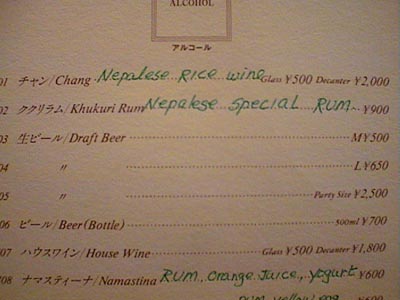 ALCOHOL
アルコール
01 チャン/Chang Nepalese Rice wine Glass ¥500 Decanter ¥2,000
02 ククリラム/Khukuri Rum Nepalese special RUM ¥900
03 生ビール/Draft Beer M¥500
04 〃 L¥650
05 〃 Party Size ¥2,500
06 ビール/Beer(Bottle) 500ml ¥700
07 ハウスワイン/House Wine Glass ¥500 Decanter ¥1,800
708 ナマスティーナ/Namastina RUM, Orange Juice, yogurt ¥600